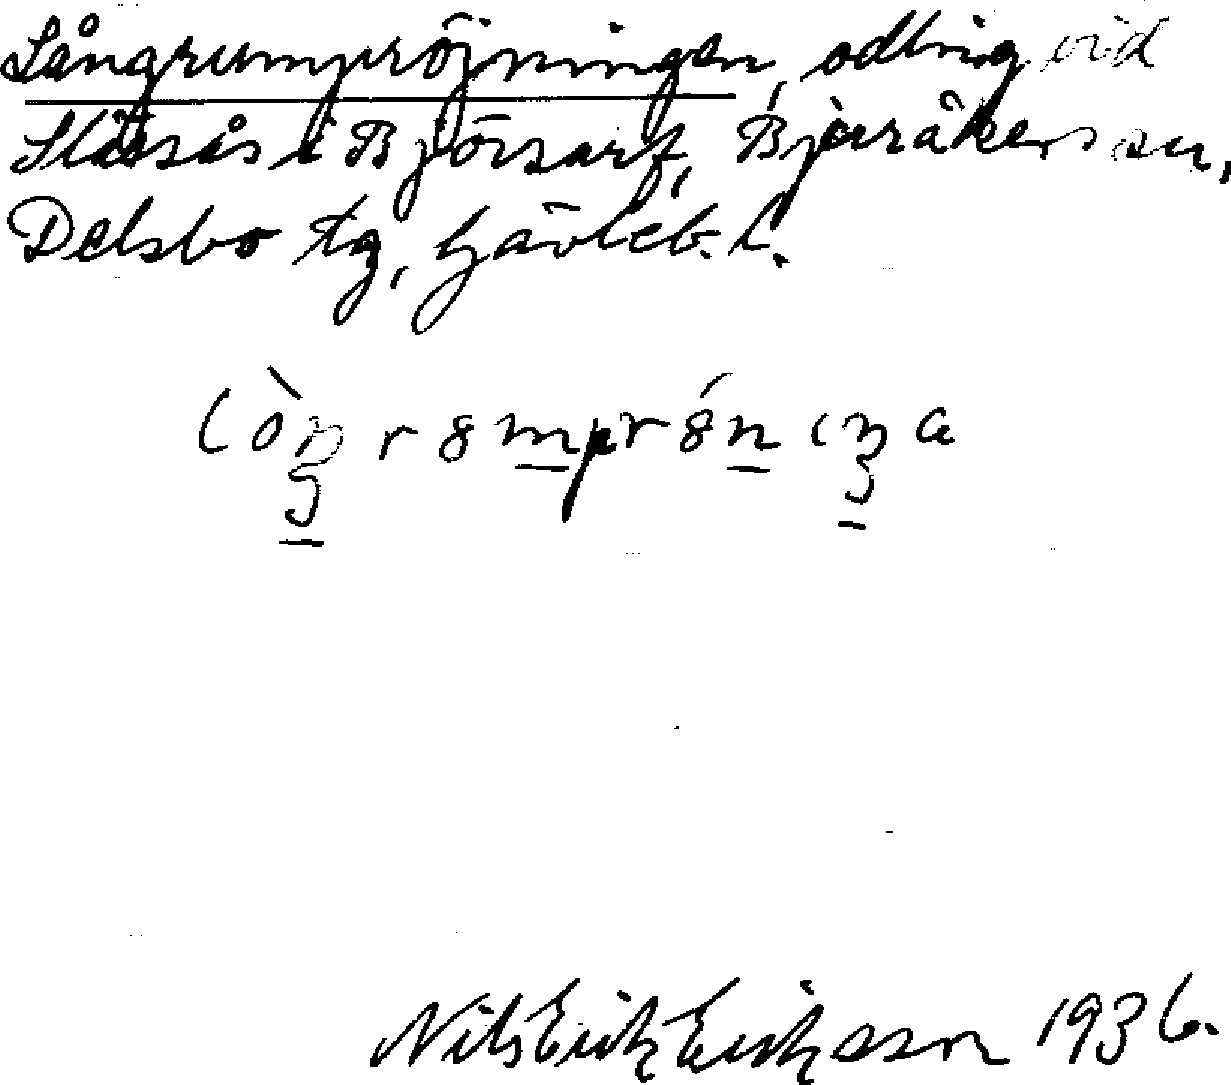 Långrumpröjningen, odling vid
Slåssås i Björsarf, Bjuråkers sn,
Delsbo tg, Gävleb. l.
Nils Erik Eriksson 1936.